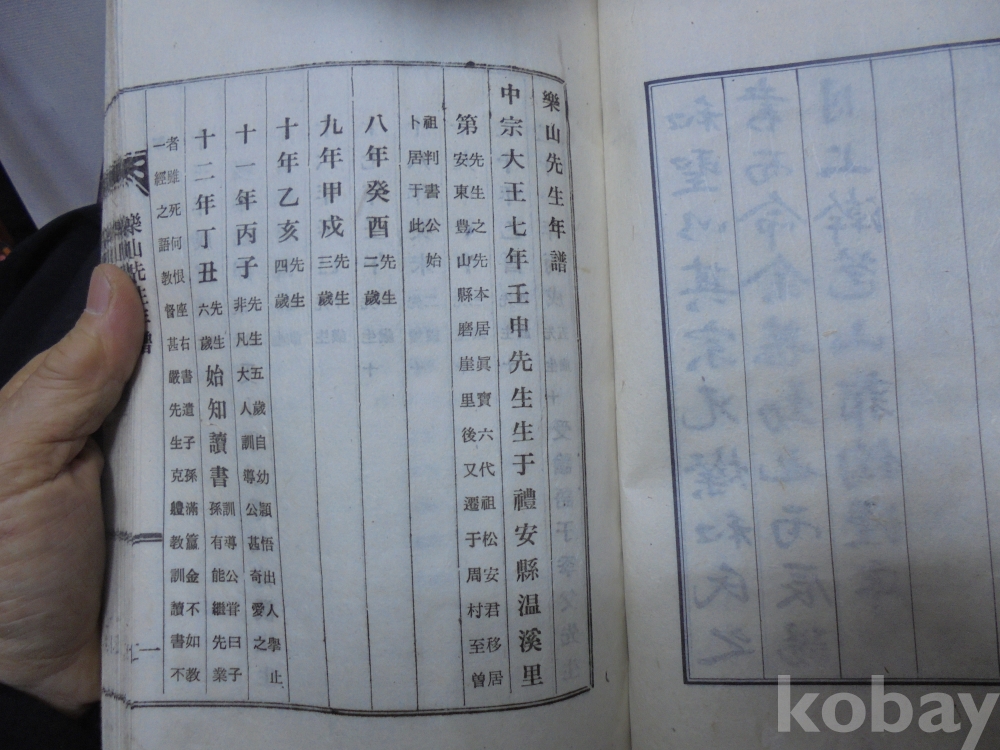 樂山先生年譜
中宗大王七年壬申先生生于禮安縣温溪里
第先生之先本居眞寶六代祖松安君移居
安東豊山縣磨崖里後又遷于周村至曾
祖判書公始
卜居于此
八年癸酉先生二歲
九年甲戌先生三歲
十年乙亥先生四歲
十一年丙子先生五歲自幼穎悟出人擧止
非凡大人訓導公甚奇愛之
十二年丁丑先生六歲始知讀書訓導公甞曰子
孫有能繼先業
者雖死何恨座右書遺子孫滿籯金不如教
一經之語教督甚嚴先生克軆教訓讀書不
樂山先生年譜
一
kobay